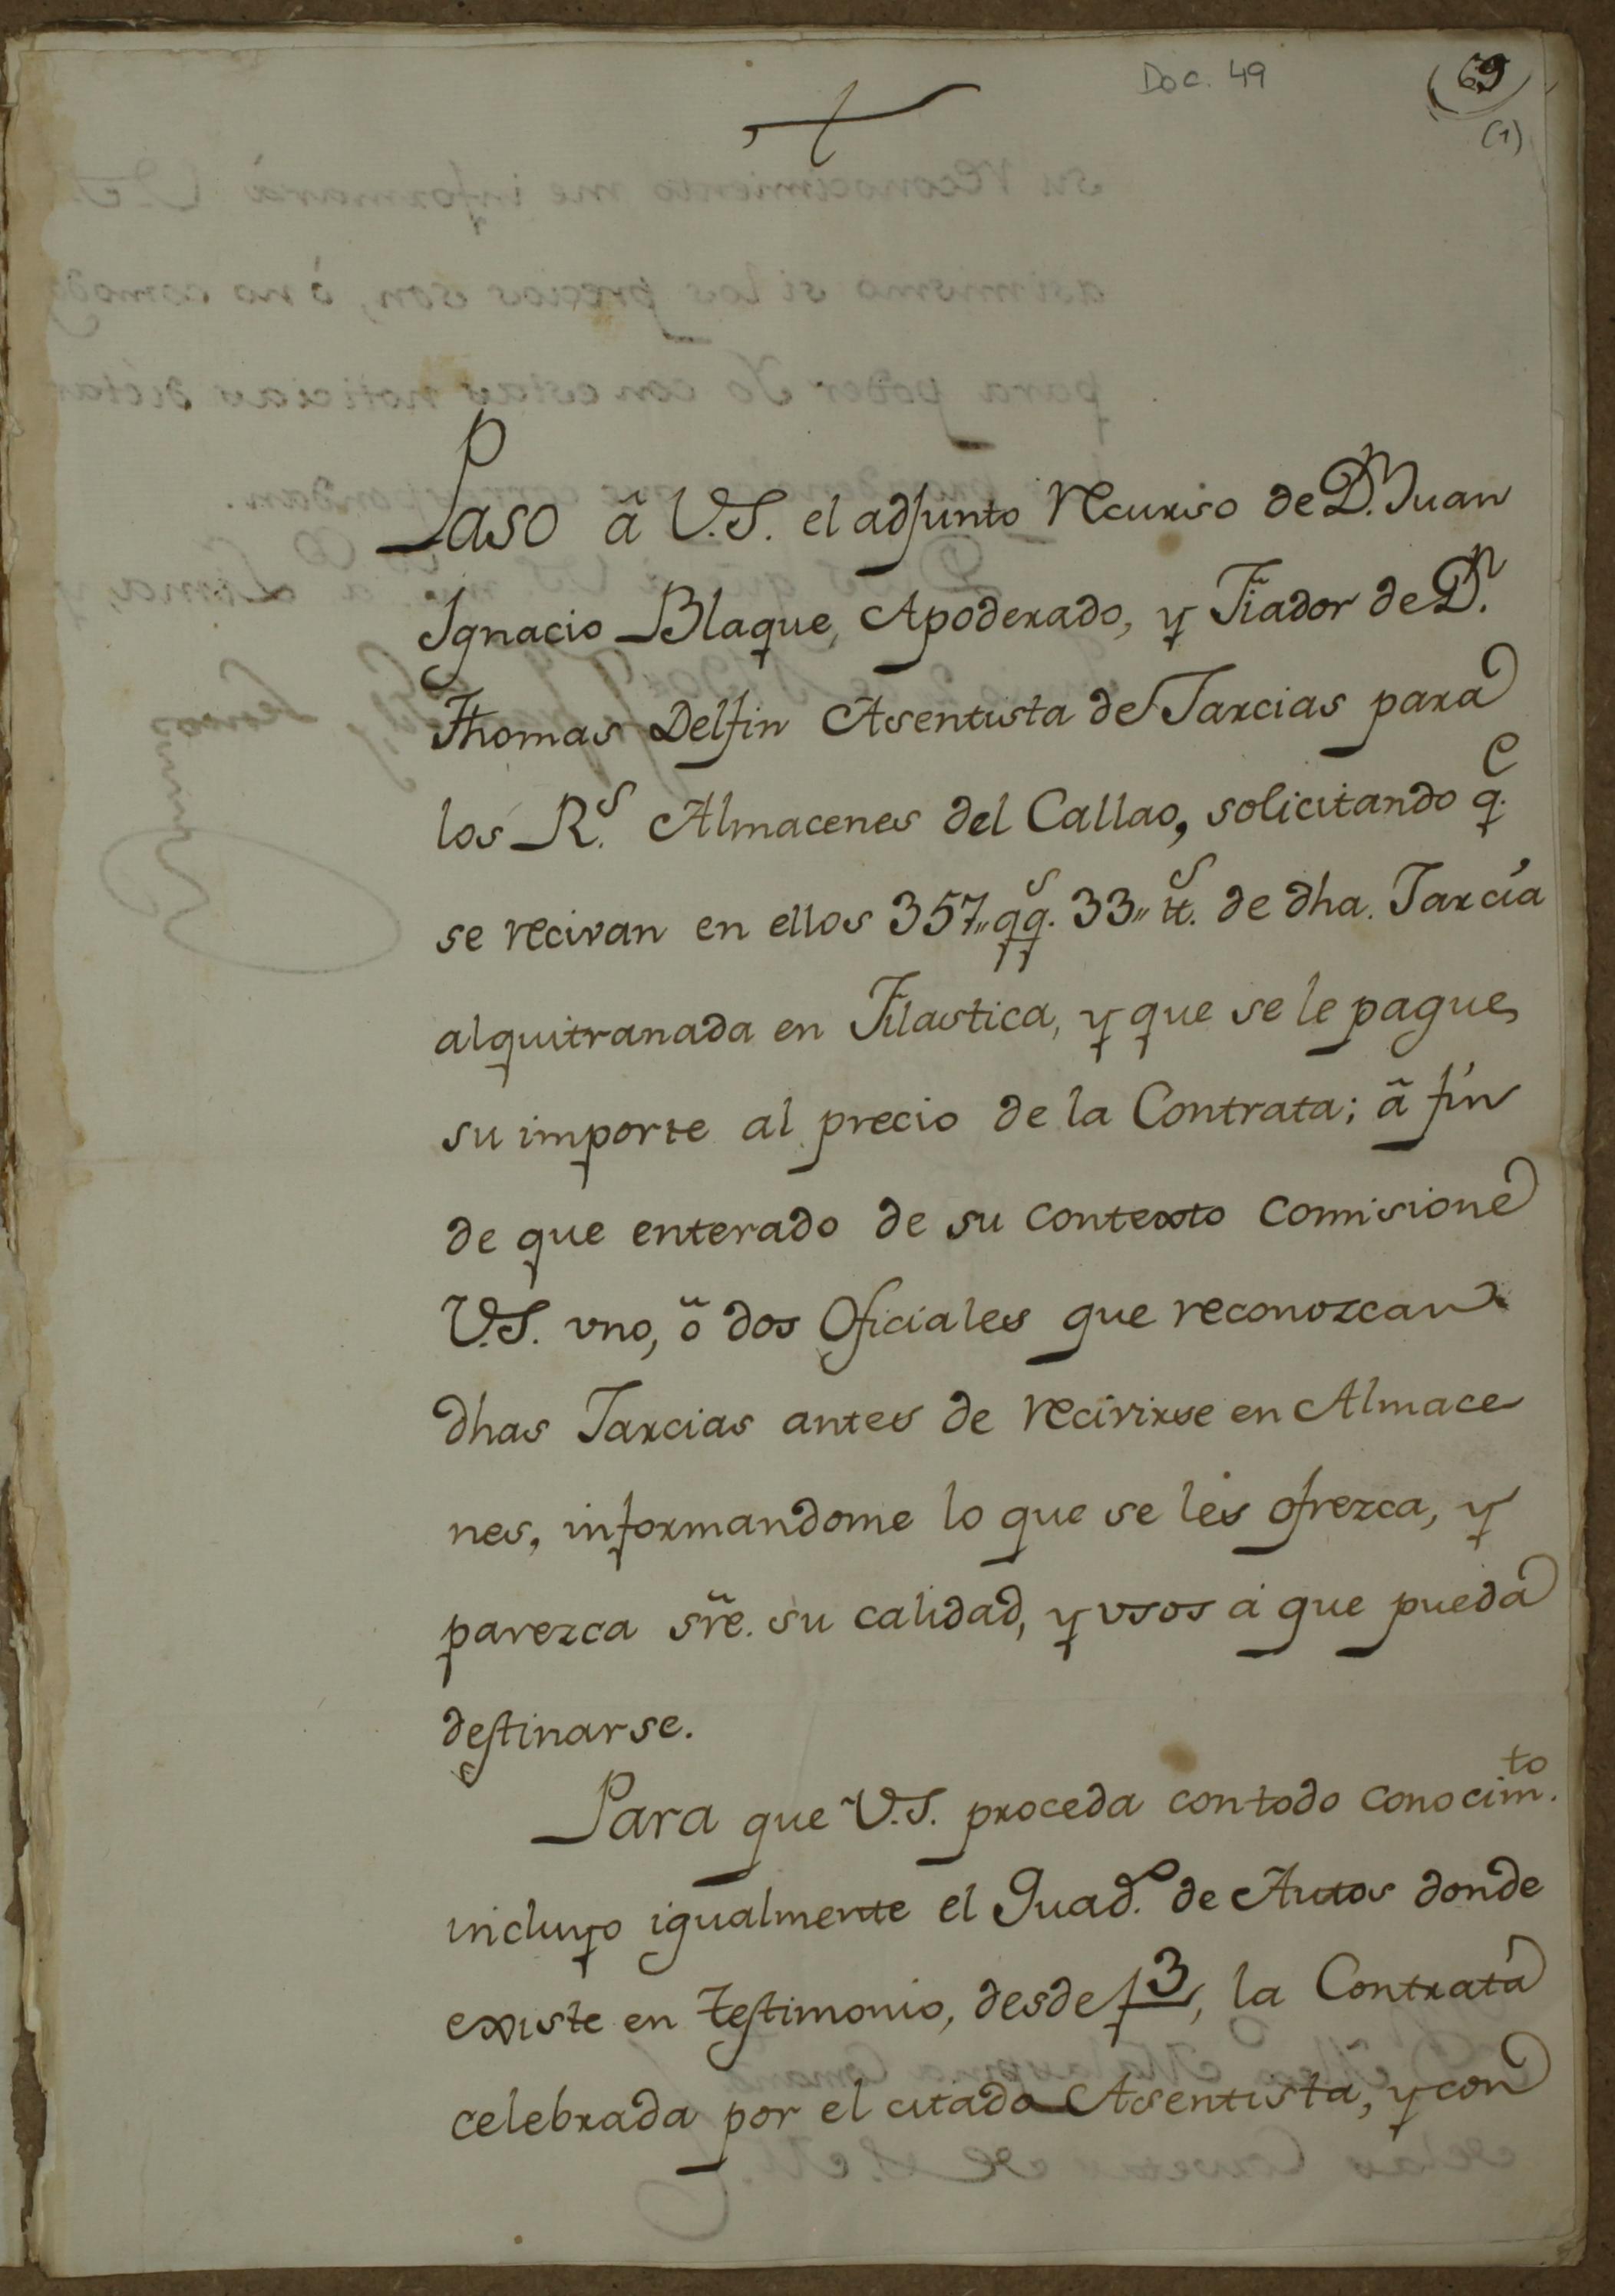 Doc. 49
(69)
(1)
Paso â V.S. el adjunto recurso de D.n Juan
Ignacio Blaque, Apoderado, y Fiador de D.n
Thomas Delfin Asentista de Jarcias para
los R.s Almacenes del Callao, solicitando q.e
se recivan en ellos 357,, qq.s 33,, tt.s de dha. Jarcia
alquitranada en Filastica, y que se le pague
su importe al precio de la Contrata; â fin
de que enterado de su contexto comisione
V.S. vno, ô dos Oficiales que reconozcan
dhas Jarcias antes de recivirse en Almace
nes, informandome lo que se les ofrezca, y
parezca sre. su calidad, y vsos á que pueda
destinarse.
Para que V.S. proceda con todo conocim.to
incluyo igualmente el Quad.o de Autos donde
existe en testimonio, desde f 3, la Contrata
celebrada por el citado Asentista, y con